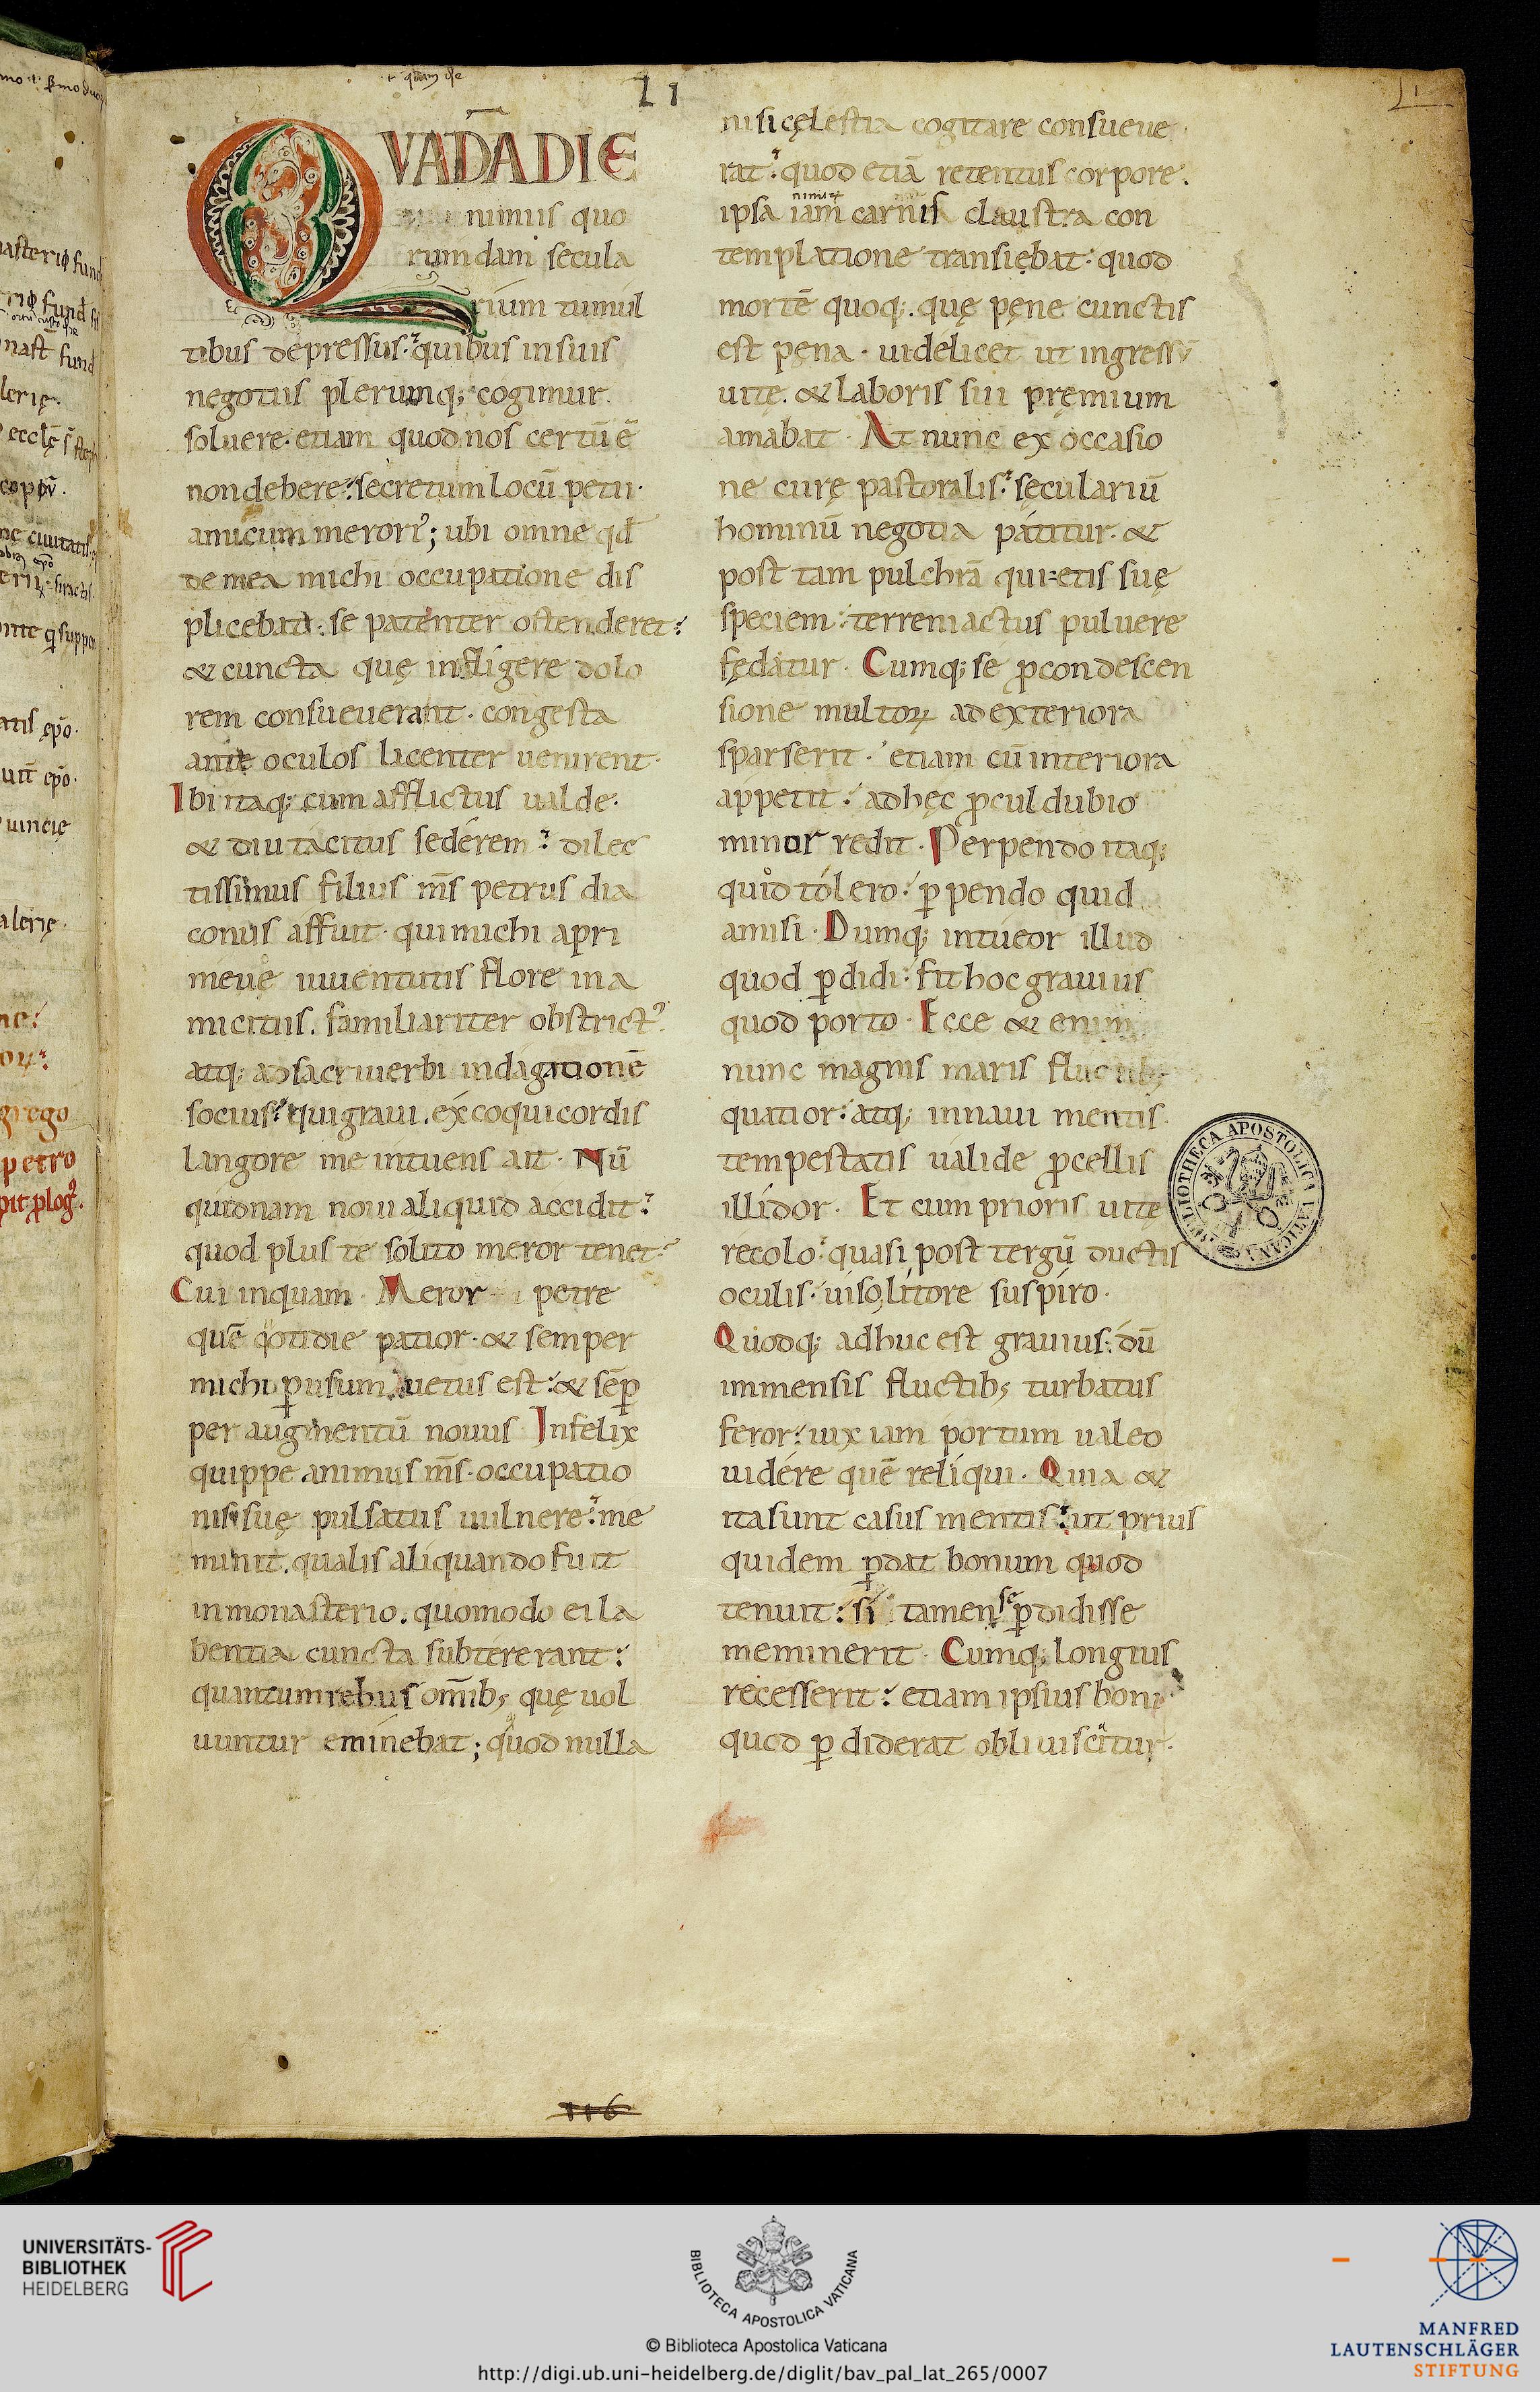 QVADĀ DIE
nimiis quo
rumdam secula
rium tumul
tibus depressus. quibus in suis
negotiis plerumq; cogimur
soluere. etiam quod nos certū ē
non debere. secretum locū petii.
amicum meroris; ubi omne qd̄
de mea michi occupatione dis
plicebat. se patenter ostenderet:
& cuncta quę infligere dolo
rem consueuerant. congesta
ante oculos licenter uenirent.
Ibi itaq; cum afflictus ualde.
& diu tacitus sedérem? dilec
tissimus filius m̄s petrus dia
conus affuit. qui michi a pri
meuę iuuentutis flore in a
micitiis. familiariter obstrict᾿
atq; ad sacri uerbi indagationē
socius. qui graui. excoqui cordis
langore me intuens ait. Nū
quidnam noui aliquid accidit?
quod plus te solito meror tenet?
Cui inquam. Meror petre
quē cotidie patior. & semper
michi p̱ usum uetus est: & sēp̱
per augmentū nouus. Infelix
quippe animus m̄s. occupatio
nis suę pulsatus uulnere. me
minit. qualis aliquando fuit
in monasterio. quomodo ei la
bentia cuncta subtererant:
quantum rebus om̄ib; quę uol
uuntur eminebat; quod nulla
nisi cęlestia cogitare consueue
rat. quod etiā retentus corpore.
ipsa iam carnis claustra con
templatione transiebat. quod
mortē quoq;. quę pęne cunctis
est pęna. uidelicet ut ingressū
uitę. & laboris sui pręmium
amabat. At nunc ex occasio
ne curę pastoralis. sęculariū
hominū negotia patitur. &
post tam pulchrā qui-etis suę
speciem: terreni actus puluere
fędatur. Cumq; se p̱ condescen
sione multoꝝ ad exteriora
sparserit. etiam cū interiora
appetit: ad hęc ꝓcul dubio
minor redit. Perpendo itaq;
quid tólero: p̱pendo quid
amisi. Dumq; intueor illud
quod p̱didi: fit hoc grauius
quod porto. Ecce & enim
nunc magnis maris fluctib;
quatior: atq; in naui mentis
tempestatis ualide ꝓcellis
illidor. Et cum prioris uitę
recolo: quasi post tergū ductis
oculis. uiso litore suspiro.
Quodq; adhuc est grauius: dū
immensis fluctib; turbatus
feror: uix iam portum ualeo
uidére quē reliqui. Quia &
ita sunt casus mentis: ut prius
quidem p̱dat bonum quod
tenuit: si tamen se p̱didisse
meminerit. Cumq; longius
recesserit: etiam ipsius boni
quod p̱diderat obliuiscitur.
116
BIBLIOTHECA APOSTOLICA VATICANA
UNIVERSITÄTS-
BIBLIOTHEK
HEIDELBERG
BIBLIOTECA APOSTOLICA VATICANA
© Biblioteca Apostolica Vaticana
http://digi.ub.uni-heidelberg.de/diglit/bav_pal_lat_265/0007
MANFRED
LAUTENSCHLÄGER
STIFTUNG